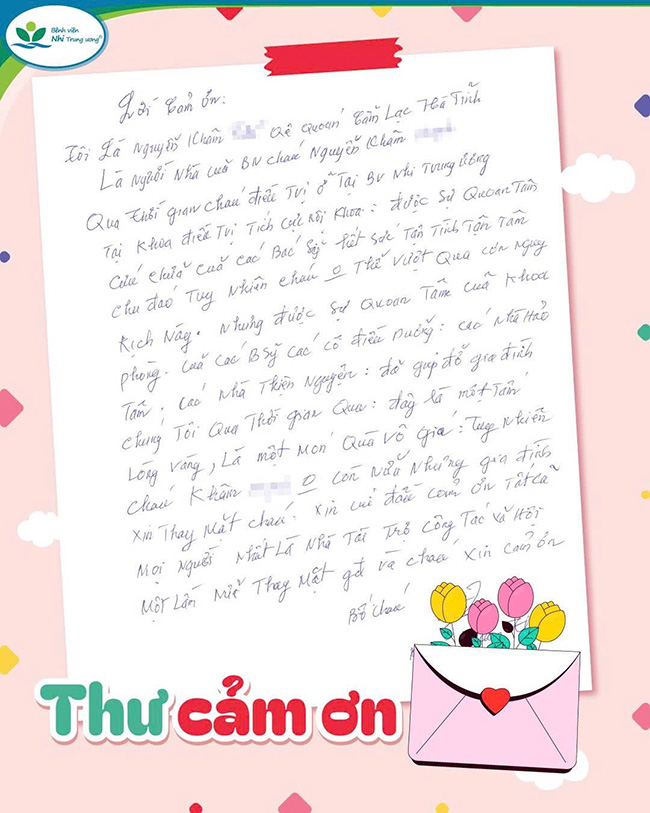 Bệnh viện
Nhi Trung ương
Lời Cảm Ơn:
Tôi Là Nguyễn Khâm Quê Quoán Cẩm Lạc Hà Tĩnh
Là Người Nhà cuả BN cháu Nguyễn Khâm
Qua thời gian cháu điều Trị ở Tại BV Nhi Trung Ương
Tại Khoa điều Trị Tích Cực Nội Khoa: được Sự Quoan Tâm
Cứu chữa cuả các Bác Sỹ hết Sức Tận Tình Tận Tâm
chu đáo Tuy Nhiên cháu 0 Thể Vượt Qua cơn nguy
Kịch Này. Nhưng được Sự Quoan Tâm cuả Khoa
phòng. cuả các BSỹ các cô điều Dưỡng: các Nhà Hảo
Tâm. các Nhà Thiện Nguyện: đã giúp đỡ gia đình
chúng Tôi Qua Thời gian Qua: đây là một Tấm
Lòng Vàng, Là một Món Quà Vô giá: Tuy Nhiên
cháu Khâm 0 còn Nữa Nhưng gia đình
Xin Thay Mặt cháu: Xin cuí đầu cảm ơn Tất cả
Mọi Người Nhất Là Nhà Tài Trợ Công Tác Xã Hội
Một Lần Nữa Thay Mặt gđ và cháu Xin cảm ơn
Bố cháu
Thư cảm ơn